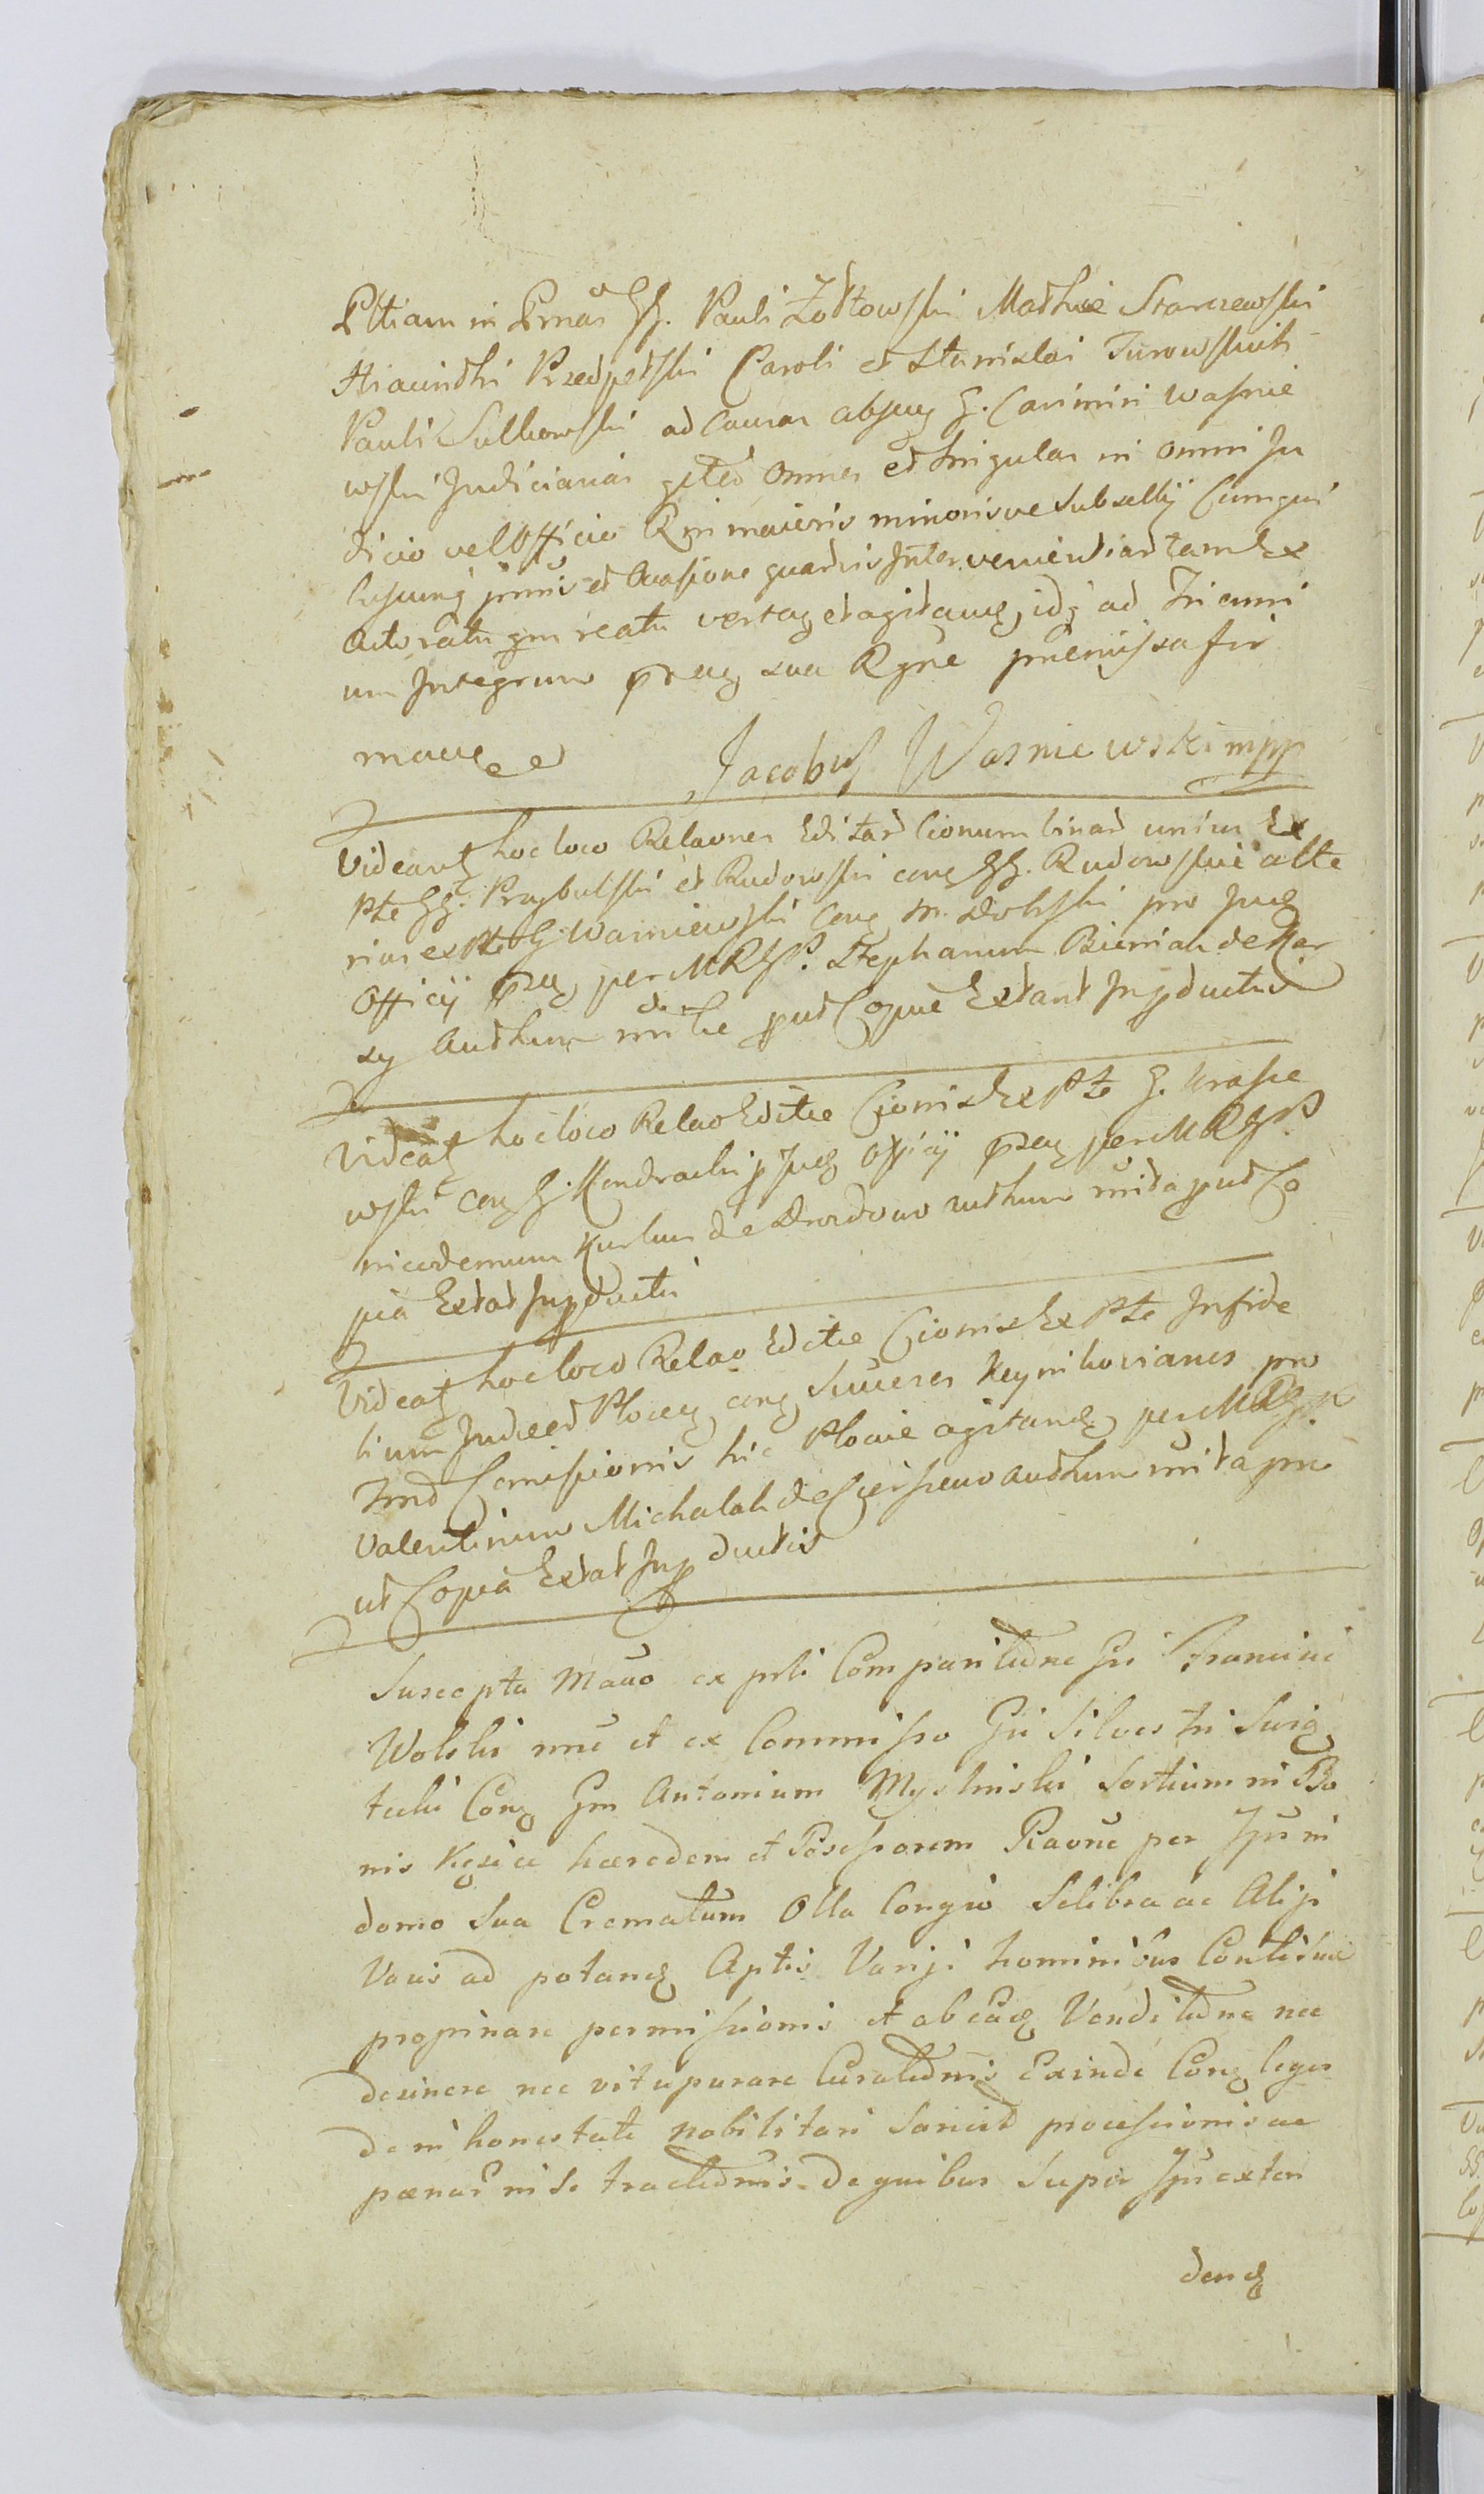 Pttiam in Prnas GG. Pauli Zołtowski Mathiæ Starczewski
Hiacinthi Przedpełski Caroli et Stanislai Turowskich
Pauli Sulkowski ad causas absque G. Casimiri Wasnie
wski Judiciarias gitas omnes et singulas in omni Ju
dicio vel Officio Rgni maioris minorisve Subsellÿ Cumqui
buscunq prnis et Occasione quarvis Intervenientiart tam Ex
actoratu qm reatu verten et agitan, idq ad Trienni
um Integrum pten sua Rgne præmissa fir
man et
Jacobus Wasniewski mpp
Videant hoc loco Relaones Editar Cionum binar unius Ex
Pte GG. Przybulski et Rudowski con GG. Rudowskie alte
rius ex Pte G. Wasniewski Con M. Dolski pro Jud
Officÿ pten per MRGR. Stephanum Bieniak de Mar
sy Authen mitæ prut Copiæ Extant Inpductis
Videat hoc loco Relao Editæ Cionis Ex Pte G. Krasie
wski con G. Kendracki p Jud Officÿ pten per MRGR
nicodemum Kurkum de Drozdowo authen mita prut Co
pia Extat Inpductis
Videat hoc loco Relao Editæ Cionis Ex Pte Infide
lium Judeor Plocen con Succes Keynihovianos pro
Imd Comissionis hic Plociæ agitand per MRGR
Valentinum Michalak de Ciersewo authen mita pro
ut Copia Extat Inpductis
Suscepta Mano ex psli Comparitione Gsi Francisci
Wolski mne et ex Commisso Gsi Silvestri Swią
tecki Con Gm Antonium Myslinski Sortium in Bo
nis Kęsice hæredem et Posessorem Raone per Ipm in
domo Sua Crematum Olla Congio Selibra ac Aliji
Vasis ad potand Aptis Varyi hominibus Contidue
propinare permissionis et ab ead Venditione nec
desinere nec vituperare Curationis Exinde Con leges
de in honestate nobilitari sancit processionis ac
pænas in se tractionis. De quibus Super Ipm exten
dend